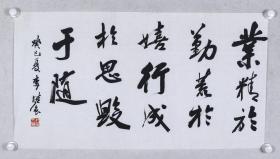 業精於
勤荒於
嬉行成
於思毀
于随
癸巳夏李